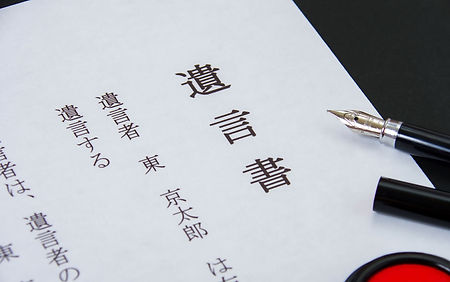 遺言書
遺言者　東　京太郎　は
遺言する
は、遺言者の
東